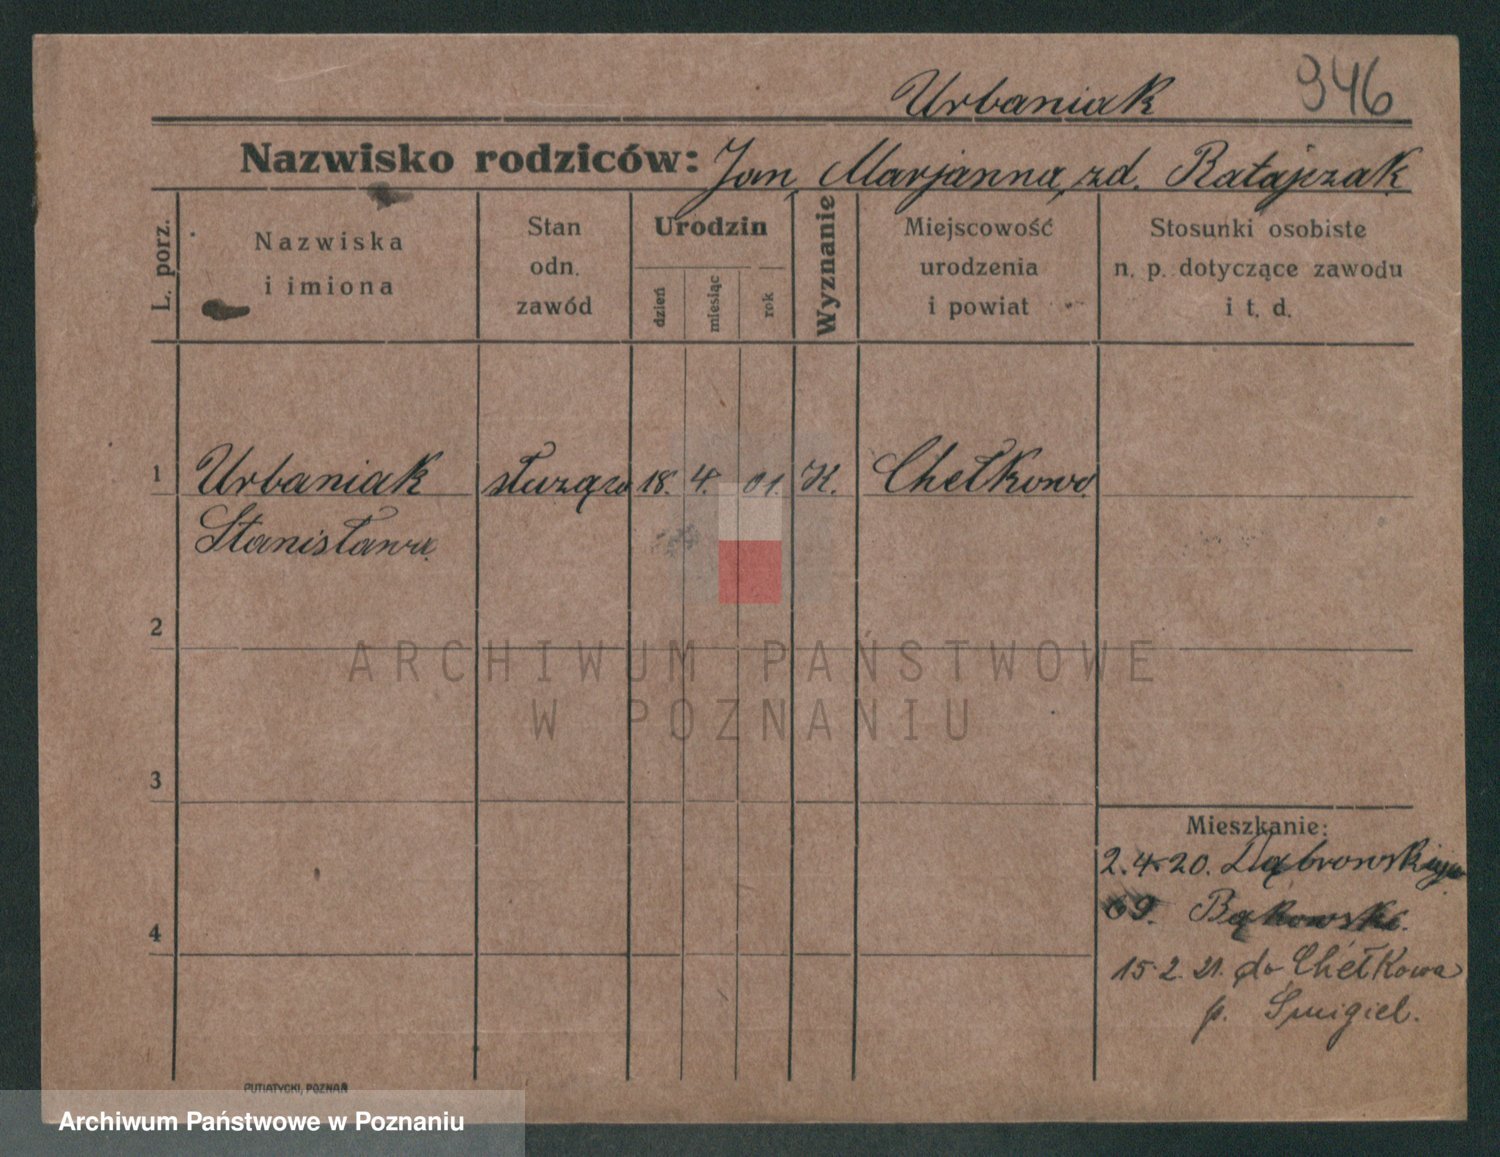 Urbaniak 946
Nazwisko rodziców: Jan, Marjanna, zd. Ratajczak
L. porz.
Nazwiska
i imiona
Stan
odn.
zawód
Urodzin
dzień
miesiąc
rok
Wyznanie
Miejscowość
urodzenia
i powiat
Stosunki osobiste
n. p. dotyczące zawodu
i t. d.
1 Urbaniak służąca 18. 4. 01. K. Chełkowo
Stanisława
2
ARCHIWUM PAŃSTWOWE
W POZNANIU
3
Mieszkanie:
2.4.20. Dąbrowskiego
69. Bąkowski.
4
15.2.21. do Chełkowa
p. Śmigiel.
PUTIATYCKI, POZNAŃ
Archiwum Państwowe w Poznaniu